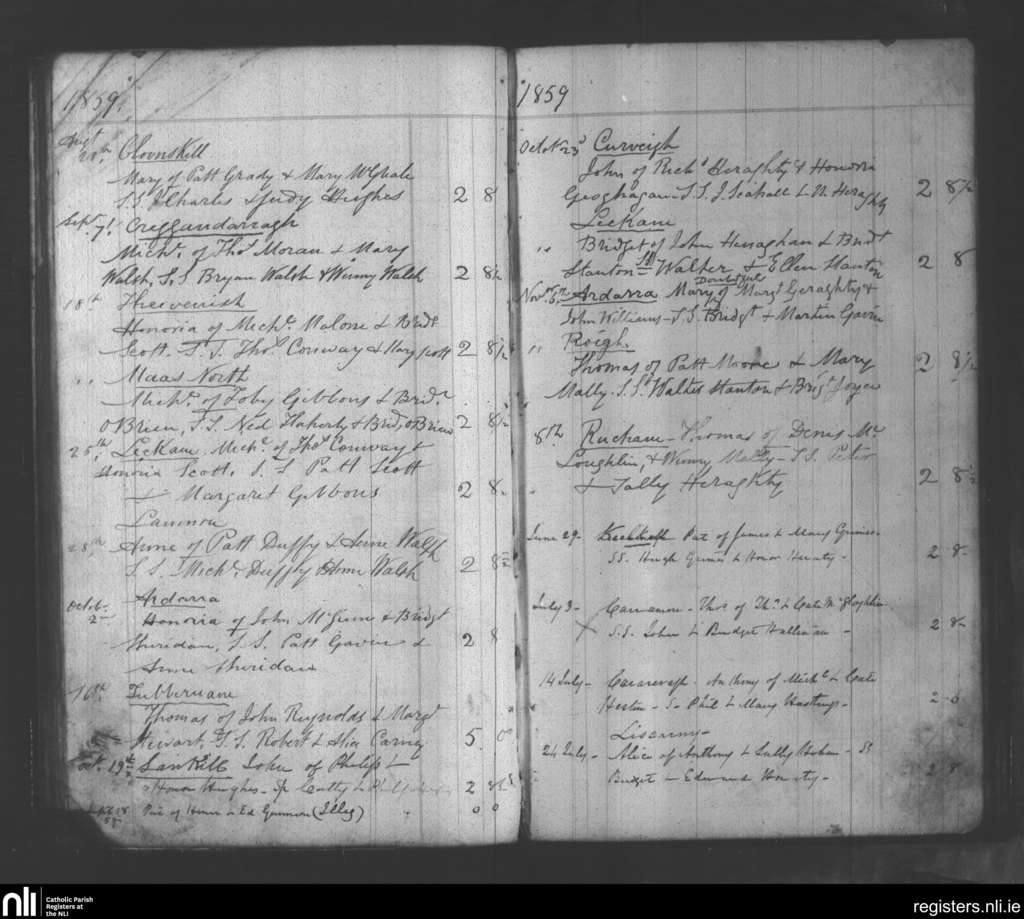 1859.
Augt
Cloonskill
Mary of Patt Grady & Mary McGhale
S.S. Charles & Judy Hughes 2 8
Sept. 7th Creggandarragh
Michl. of Thos Moran & Mary
Walsh, S.S Bryan Walsh & Winny Walsh 2 8½
18th
Honoria of Michl. Malone & Bridt
Scott. S.S. Thos. Conway & Mary Scott 2 8½
" Maas North
Michl. of Toby Gibbons & Brid.
O'Brien, S.S. Ned Flaherty & Brid. O'Brien 2 8½
25th Leckane. Michl. of Thos Conway &
Honoria Scott, S.S Patt Scott
& Margaret Gibbons 2 8
28th Anne of Patt Duffy & Anne Walsh
S.S. Michl. Duffy & Anne Walsh 2 8½
Octob. 2 Ardarra
Honoria of John & Bridgt
Sheridan, S.S. Patt Gavin & 2 8
Anne Sheridan
16th Tubberuane
Thomas of John Reynolds & Margt
Stewart, S.S. Robert & Alice Carney 5 0
Oct. 19th Lankill John of Philip &
Honor Hughes - Sp 2 8½
Pat of Honor & Ed (Illeg) 0 0
1859
Octob 23d Curveigh
John of Richd Heraghty & Honora
Geoghagan S.S. J. & N. Heraghty 2 8½
Leckane
" Bridget of John Heraghan & Bridt
Stanton SS Walter & Ellen Stanton 2 8
Novr. 6th Ardarra Mary of Margt Geraghty &
John Williams - S.S. Bridgt & Martin Gavin
" Roigh.
Thomas of Patt Moore & Mary 2 8½
Mally. S.S. Walter Stanton & Brigt Joyce
8th Ruchane - Thomas of Denis Mc
Loughlin, & Winny Mally - S.S. Peter
& Sally Heraghty 2 8½
June 29 - Pat of James & Mary Grimes -
SS. Hugh Grimes & Honor 2 8
July 3 - - Thos of Ths. & Cate McGloghlin
S.S. John & Bridget - 2 8
14 July - - Anthony of Michl & Cate
- S. Phil & Mary Hastings - 2 6
24 July - Alice of Anthony & Sally - SS
Bridget & Edward - 2 8
nli
Catholic Parish
Registers at
the NLI
registers.nli.ie